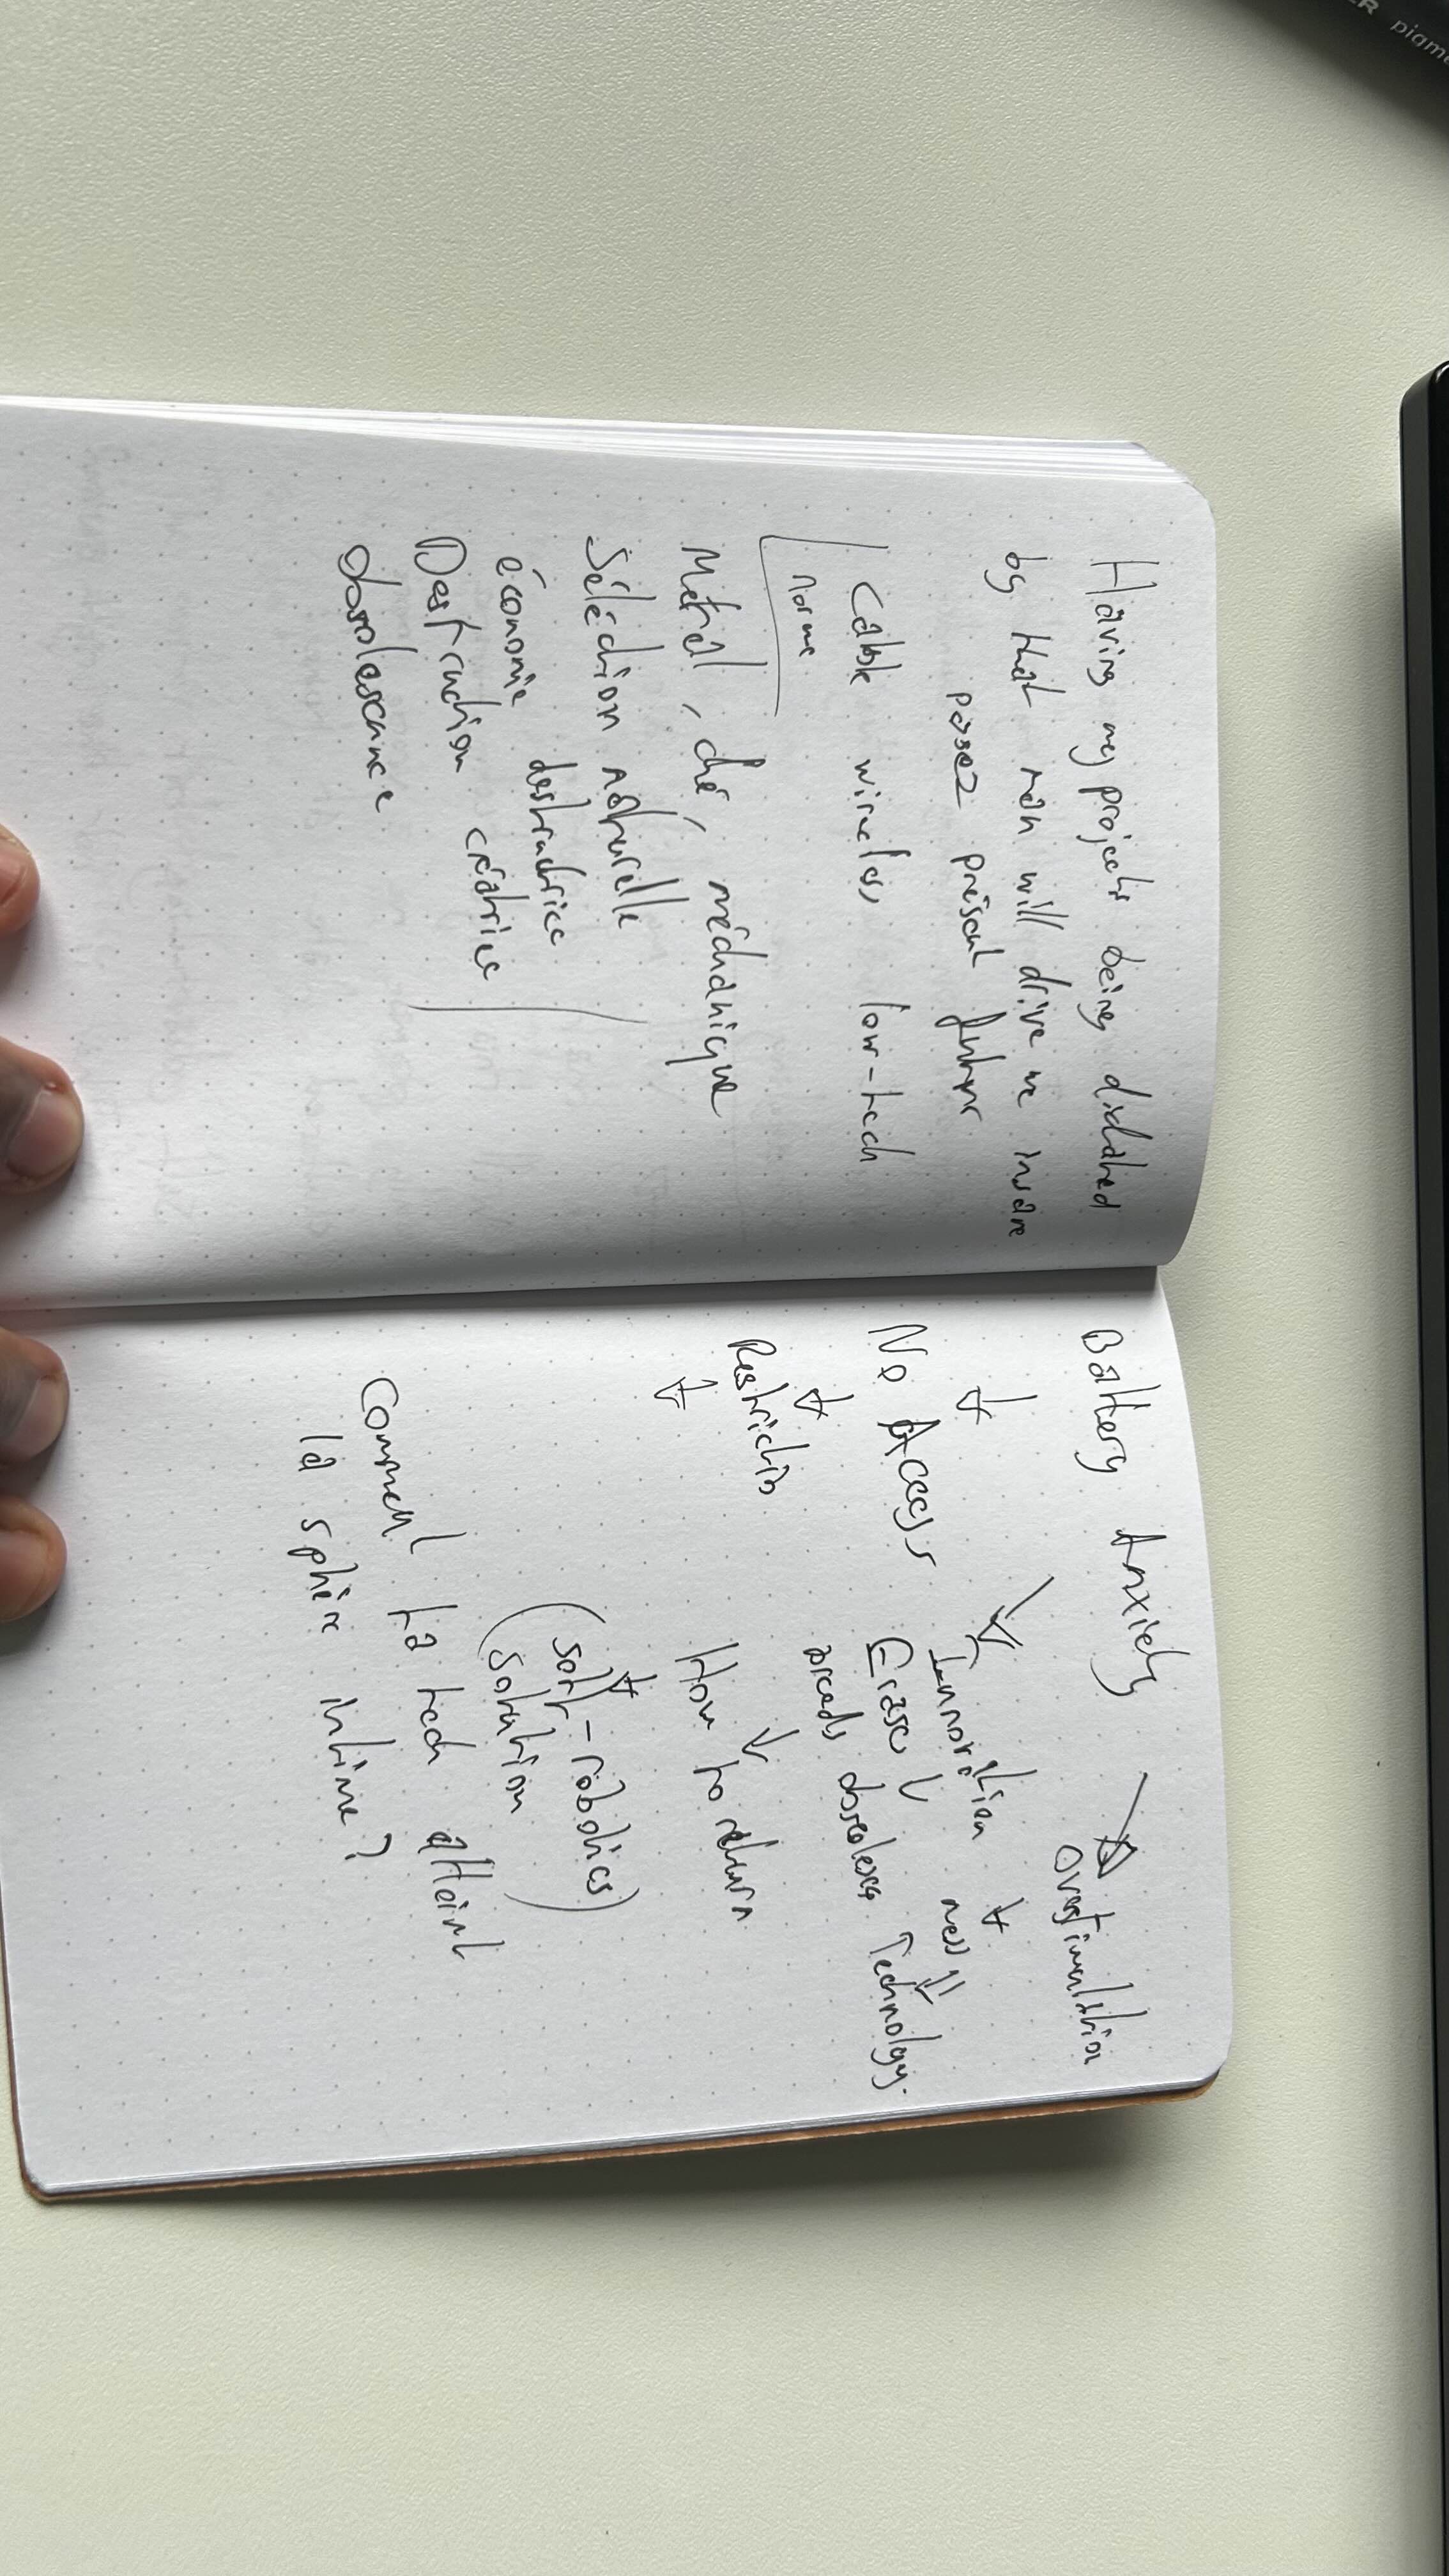 Having my projects being dictated
by that man will drive me insane
passez présent future
Cable wireless low-tech
norme
Metal, clé, méchanique
Sélection naturelle
économie destructrice
Destruction créatrice
obsolescence
Battery Anxiety
Overstimulation
No Access
Innovation
mess
Erase
Technology.
Restriction
obsolesce
How to return
(Soft-robotics)
(Solution
Comment la tech atteint
la sphère intime?
R pigm